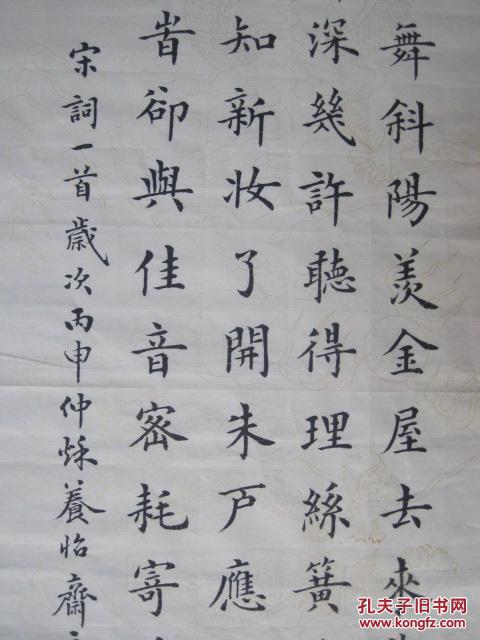 舞斜陽羨金屋去來
深幾許聽得理絲簧
知新妝了開朱戸應
昔卻與佳音密耗寄
宋詞一首歲次丙申仲秌養怡齋
孔夫子旧书网
KONGFZ.COM